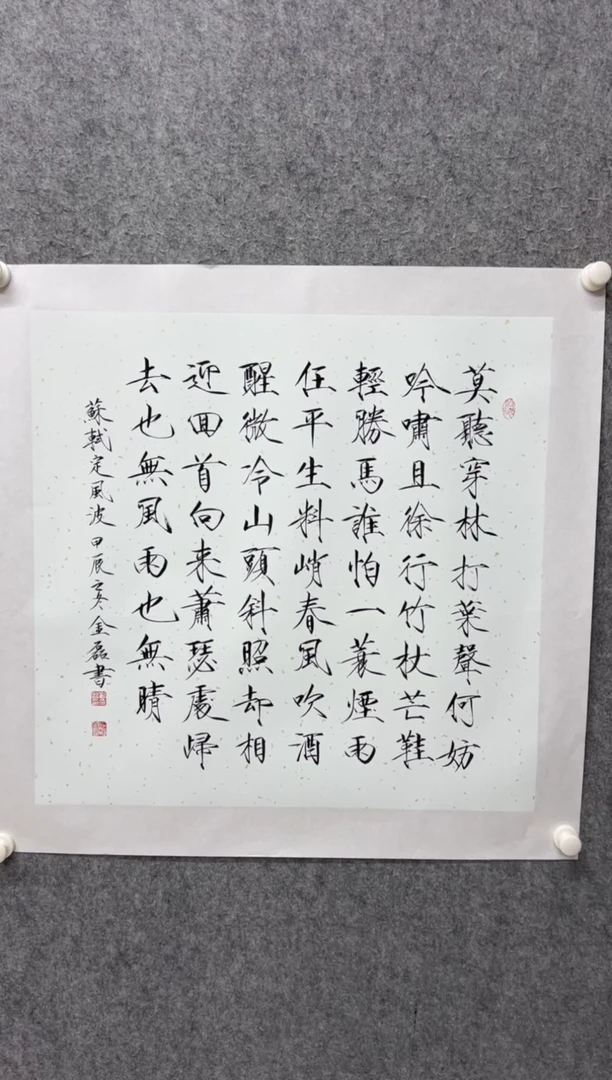 莫聽穿林打葉聲何妨
吟嘯且徐行竹杖芒鞋
輕勝馬誰怕一蓑煙雨
任平生料峭春風吹酒
醒微冷山頭斜照却相
迎回首向来蕭瑟處歸
去也無風雨也無晴
蘇軾定風波甲辰亥金磊書